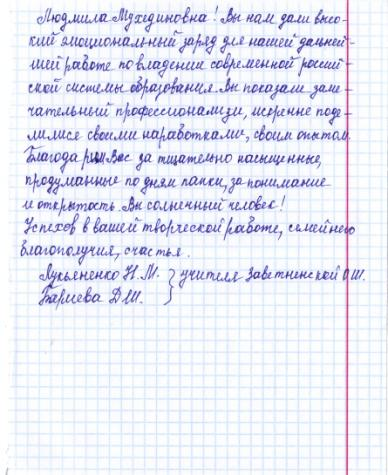 Людмила Мухединовна! Вы нам дали высо-
кий эмоциональный заряд для нашей дальней-
шей работе по владении современной россий-
ской системы образования. Вы показали заме-
чательный профессионализм, искренне поде-
лились своими наработками, своим опытом.
Благодарим Вас за тщательно насыщенные,
продуманные по дням папки, за понимание
и открытость. Вы солнечный человек!
Успехов в вашей творческой работе, семейного
благополучия, счастья.
Лукьяненко Н.М. } учителя Заветнинской ОШ.
Бариева Д.Ш.